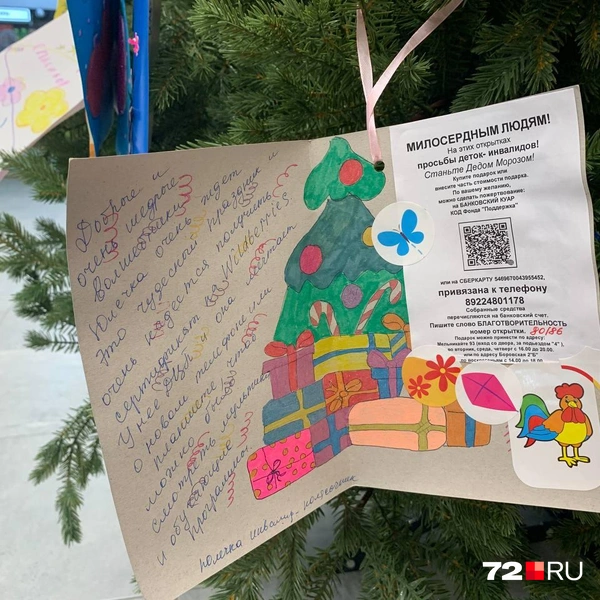 Добрые и
очень щедрые
Волшебники
Юлечка очень ждет
это чудесный праздник и
очень надеется получить
сертификат из Wildberries.
У нее ДЦП и она мечтает
о новом телефоне или
планшете, чтобы
можно было
смотреть мультики
и обучающие
программы
Юлечка инвалид-колясочник
МИЛОСЕРДНЫМ ЛЮДЯМ!
На этих открытках
просьбы деток- инвалидов!
Станьте Дедом Морозом!
Купите подарок или
внесите часть стоимости подарка.
По вашему желанию,
можно сделать пожертвование:
на БАНКОВСКИЙ КУАР
КОД Фонда "Поддержка"
или на СБЕРКАРТУ 5469670043955452,
привязана к телефону
89224801178
Собранные средства
перечисляются на банковский счет.
Пишите слово БЛАГОТВОРИТЕЛЬНОСТЬ
номер открытки. 80/86
Подарок можно принести по адресу:
Мельникайте 93 (вход со двора, за подъездом "4" ),
во вторник, среда, четверг с 16.00 до 20.00.
или по адресу Боровская 2"Б"
по воскресеньям с 14.00 до 16.00
72 RU